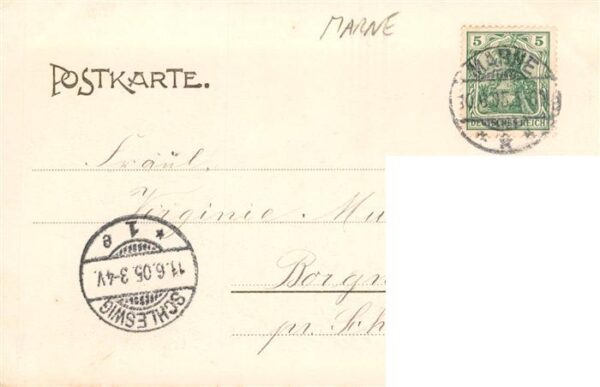 MARNE
5 5
MARNE
DEUTSCHES REICH
POSTKARTE.
Fräul.
Virginie Mu
Borgn
pr. Sch
* 1 e
11.6.05.3-4V.
SCHLESWIG